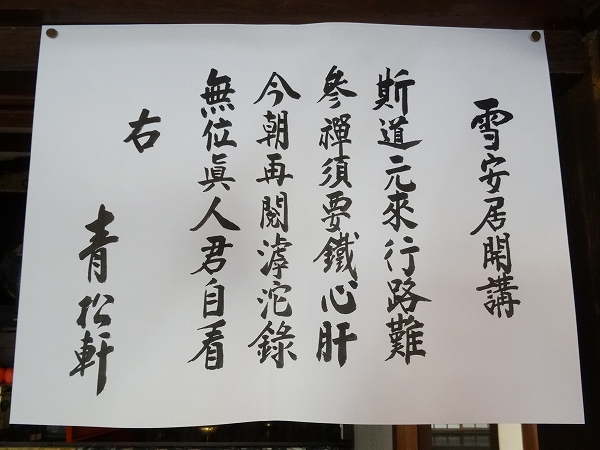 雪安居開講
斯道元來行路難
參禪須要鐵心肝
今朝再閲滹沱錄
無位眞人君自看
右
青松軒